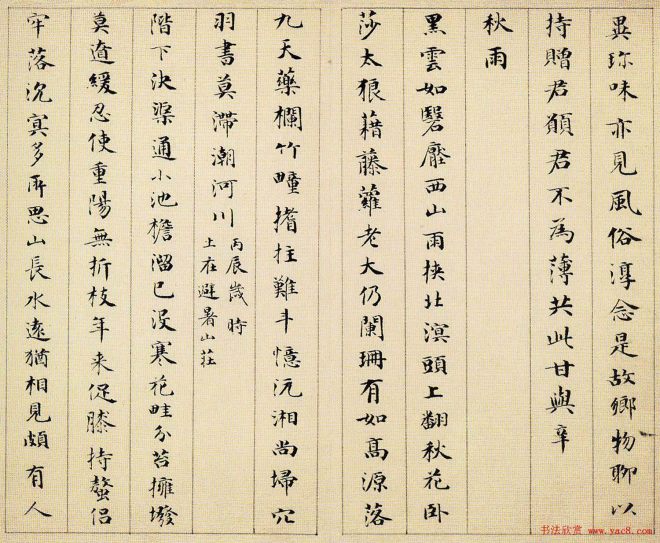 異珎味亦見風俗淳念是故鄉物聊以
持贈君願君不為薄共此甘與辛
秋雨
黑雲如翳壓西山雨挾北溟頭上翻秋花卧
莎太狼藉藤蘿老大仍闌珊有如高源落
九天藥欄竹疃搘拄難斗憶沅湘尚埽穴
羽書莫滯潮河川
丙辰歲時
上在避暑山莊
階下决渠通小池檐溜已没寒花畦分苔擁墢
莫緩忍使重陽無折枝年来促膝持螯侣
牢落沉冥多所思山長水遠猶相見頗有人
书法欣赏 www.yac8.com